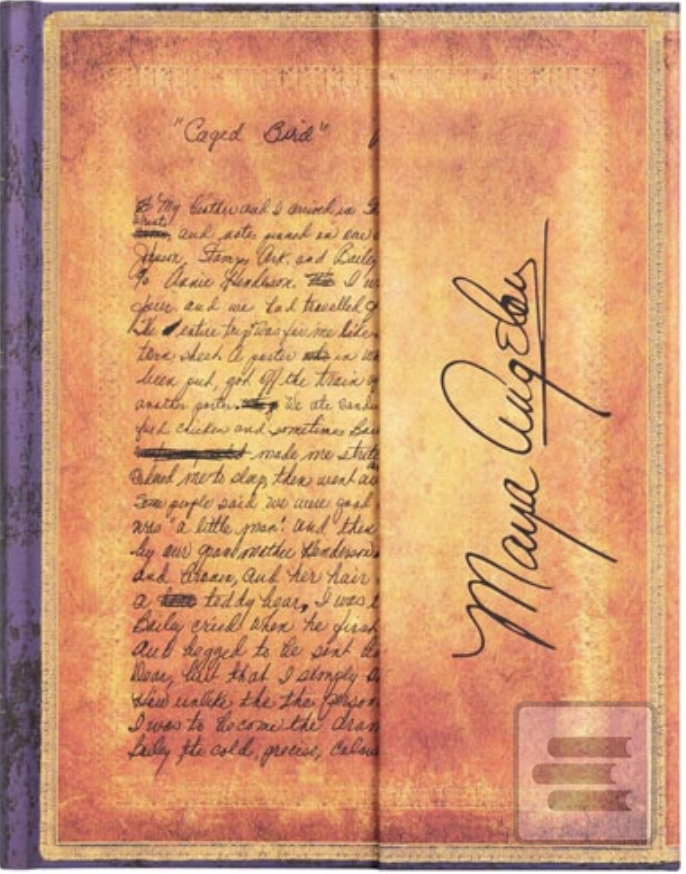 "Caged Bird"
My brother and I arrived in
and notes pinned on our
Jnson, Stamps Ark. and Bailey
to Annie Henderson. I
four and we had travelled
The entire trip was for me like
torn sheet. A porter in
been put, got off the train
another porter. We ate
fried chicken and sometimes
made me
me to sleep, then went
Some people said we were good
was "a little man" and this
by our grandmother Henderson
and brown, and her hair
a teddy bear, I was
Bailey cried when he first
and begged to be sent
Dear, but that I simply
How unlike the the person
I was to become the
Bailey the cold, precise,
Maya Angelou